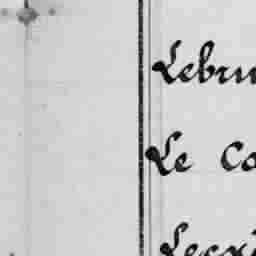 Lebru
Le Co
Lecxi